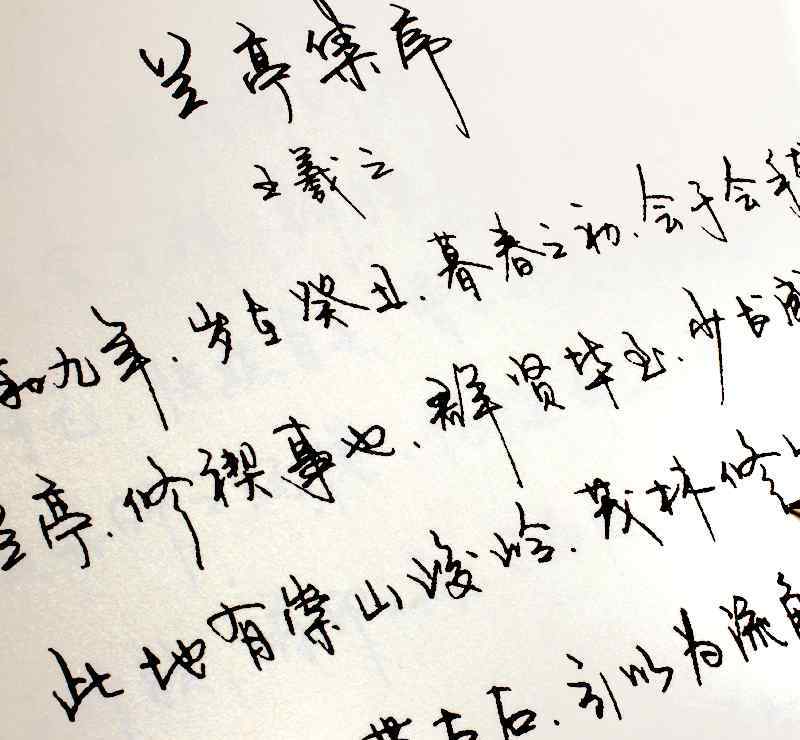 兰亭集序
王羲之
和九年.岁在癸丑.暮春之初.会于会
兰亭.修禊事也.群贤毕至.少长咸
此地有崇山峻岭.茂林修
左右.引以为流